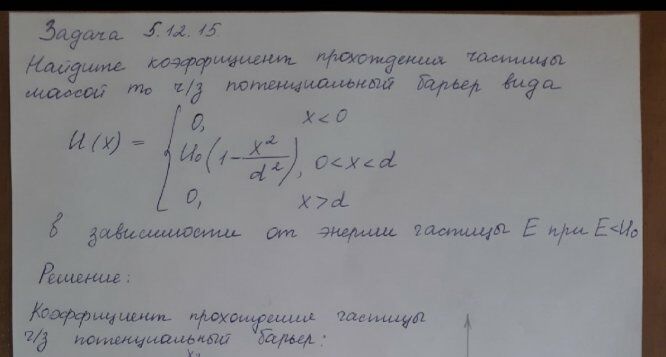 Задача 5.12.15
Найдите коэффициент прохождения частицы
массой m₀ ч/з потенциальный барьер вида
0, x<0
U(x) = { U₀(1-x²/d²), 0<x<d
0, x>d
в зависимости от энергии частицы E при E<U₀
Решение:
Коэффициент прохождения частицы
ч/з потенциальный барьер: